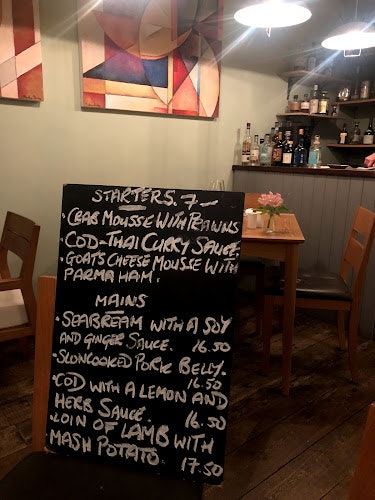 STARTERS. 7 -
• CRAB MOUSSE WITH PRAWNS
• COD - THAI CURRY SAUCE.
• GOATS CHEESE MOUSSE WITH
PARMA HAM.
MAINS
• SEABREAM WITH A SOY
AND GINGER SAUCE. 16.50
• SLOWCOOKED PORK BELLY.
16.50
• COD WITH A LEMON AND
HERB SAUCE. 16.50
• LOIN OF LAMB WITH
MASH POTATO. 17.50